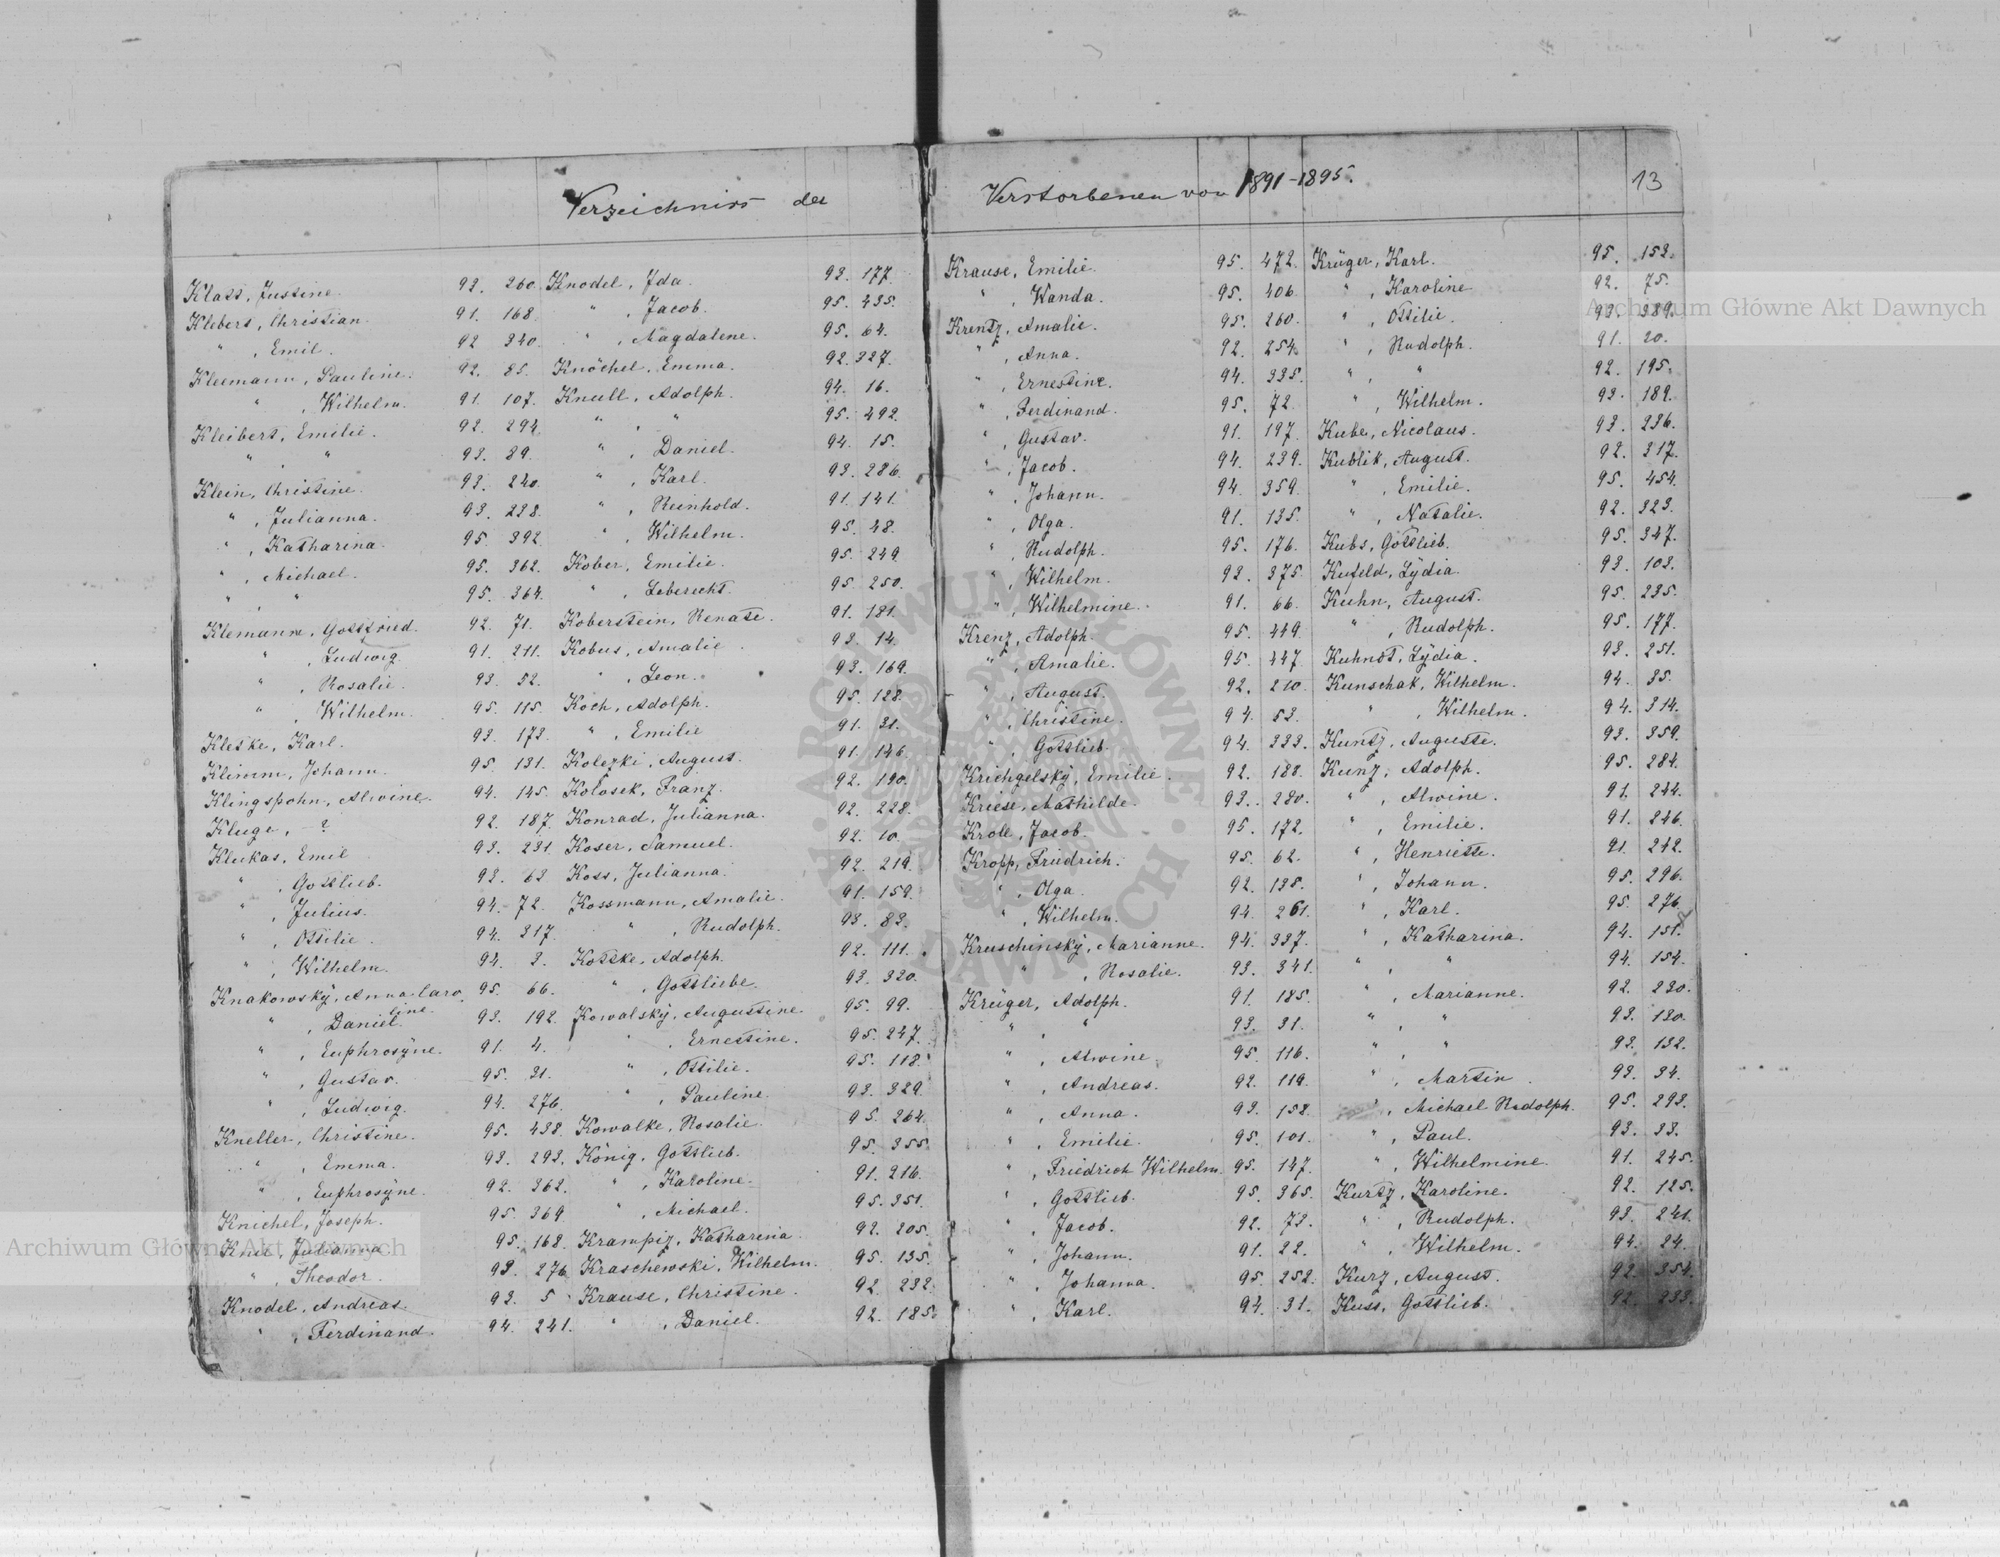 Verzeichniss der Verstorbenen von 1891-1895. 13
Klatt, Justine 92. 260.
Klebert, Christian. 91. 168.
" , Emil. 92 340.
Kleemann, Pauline. 92. 85.
" , Wilhelm. 91. 107.
Kleibert, Emilie. 92. 294.
" , " 93. 89.
Klein, Christine. 93. 240.
" , Julianna. 93. 228.
" , Katharina. 95. 392.
" , Michael. 95. 362.
" , " 95. 364.
Klemann, Gottfried. 92. 71.
" , Ludwig. 91. 211.
" , Rosalie. 93. 52.
" , Wilhelm. 95. 115.
Kletke, Karl. 93. 173.
Klimm, Johann. 95. 131.
Klingspohn, Alwine. 94. 145.
Kluge, - ? 92. 187.
Klukas, Emil 93. 231.
" , Gottlieb. 93. 63
" , Julius. 94. 72.
" , Ottilie. 94. 317.
" , Wilhelm. 94. 3.
Knakowský, Anna Caroline. 95. 66.
" , Daniel. 93. 192.
" , Euphrosÿne. 91. 4.
" , Gustav. 95. 31.
" , Ludwig. 94. 276.
Kneller, Christine. 95. 438.
" , Emma. 93. 293.
" , Euphrosÿne. 92. 362.
Knichel, Joseph. 95. 369
Knie, Julianna 95. 168.
" , Theodor. 93. 276
Knodel, Andreas. 93. 5
" , Ferdinand. 94. 241.
Knodel, Ida. 93. 177.
" , Jacob. 95. 435.
" , Magdalene. 95. 64.
Knöchel, Emma. 92. 327.
Knull, Adolph. 94. 16.
" , " 95. 492.
" , Daniel. 94. 15.
" , Karl. 93. 286.
" , Reinhold. 91. 141.
" , Wilhelm. 95. 48.
Kober, Emilie. 95. 249
" , Leberecht. 95. 250.
Koberstein, Renate. 91. 181.
Kobus, Amalie. 93. 14.
" , Leon. 93. 169.
Koch, Adolph. 95. 128.
" , Emilie 91. 31.
Kolezki, August. 91. 146.
Kolosek, Franz. 92. 190.
Konrad, Julianna. 92. 228.
Koser, Samuel. 92. 10.
Koss, Julianna. 92. 219.
Kossmann, Amalie. 91. 159.
" , Rudolph. 93. 83.
Kottke, Adolph. 92. 111.
" , Gottliebe. 93. 320.
Kowalský, Augustine 95. 99.
" , Ernestine. 95. 247.
" , Ottilie. 95. 118.
" , Pauline. 93. 329.
Kowalke, Rosalie. 95. 264.
König, Gottlieb. 95. 355.
" , Karoline. 91. 216.
" , Michael. 95. 351.
Krampiz, Katharina. 92. 205.
Kraschewski, Wilhelm. 95. 135.
Krause, Christine. 92. 232.
" , Daniel. 92. 185.
Krause, Emilie. 95. 472.
" , Wanda. 95. 406.
Krentz, Amalie. 95. 260.
" , Anna. 92. 254.
" , Ernestine. 94. 335.
" , Ferdinand. 95. 72.
" , Gustav. 91. 197.
" , Jacob. 94. 239.
" , Johann. 94. 359.
" , Olga. 91. 135.
" , Rudolph. 95. 176.
" , Wilhelm. 93. 375.
" , Wilhelmine. 91. 66.
Krenz, Adolph. 95. 449.
" , Amalie. 95. 447.
" , August. 92. 210.
" , Christine. 94. 53.
" , Gottlieb. 94. 333.
Krichgelský, Emilie. 92. 188.
Kriese, Mathilde. 93. 280.
Kroll, Jacob. 95. 172.
Kropp, Friedrich. 95. 62.
" , Olga. 92. 135.
" , Wilhelm. 94. 261.
Kruschinský, Marianne. 94. 337.
" , Rosalie. 93. 341.
Krüger, Adolph. 91. 185.
" , " 93. 31.
" , Alwine. 95. 116.
" , Andreas. 92. 119.
" , Anna. 93. 158.
" , Emilie. 95. 101.
" , Friedrich Wilhelm. 95. 147.
" , Gottlieb. 95. 365.
" , Jacob. 92. 73.
" , Johann. 91. 22.
" , Johanna. 95. 252.
" , Karl. 94. 31.
Krüger, Karl. 95. 153.
" , Karoline 92. 75.
" , Ottilie. 93. 389.
" , Rudolph. 91. 20.
" , " 92. 195.
" , Wilhelm. 93. 189.
Kube, Nicolaus. 93. 236.
Kublik, August. 92. 317.
" , Emilie. 95. 454.
" , Natalie. 92. 323.
Kubs, Gottlieb. 95. 347.
Kufeld, Lÿdia. 93. 103.
Kuhn, August. 95. 235.
" , Rudolph. 95. 177.
Kuhndt, Lÿdia. 93. 251.
Kunschak, Wilhelm. 94. 35.
" , Wilhelm. 94. 314.
Kuntz, Auguste. 93. 359.
Kunz, Adolph. 95. 284.
" , Alwine. 91. 244.
" , Emilie. 91. 246.
" , Henriette. 91. 242.
" , Johann. 95. 296.
" , Karl. 95. 276.
" , Katharina. 94. 151.
" , " 94. 154.
" , Marianne. 92. 230.
" , " 93. 130.
" , " 93. 132.
" , Martin. 93. 34.
" , Michael Rudolph. 95. 293.
" , Paul. 93. 33.
" , Wilhelmine. 91. 245.
Kurtz, Karoline. 92. 125.
" , Rudolph. 93. 241.
" , Wilhelm. 94. 24.
Kurz, August. 92. 354.
Kuss, Gottlieb. 92. 233.
Archiwum Główne Akt Dawnych
Archiwum Główne Akt Dawnych
ARCHIWUM GŁÓWNE AKT DAWNYCH